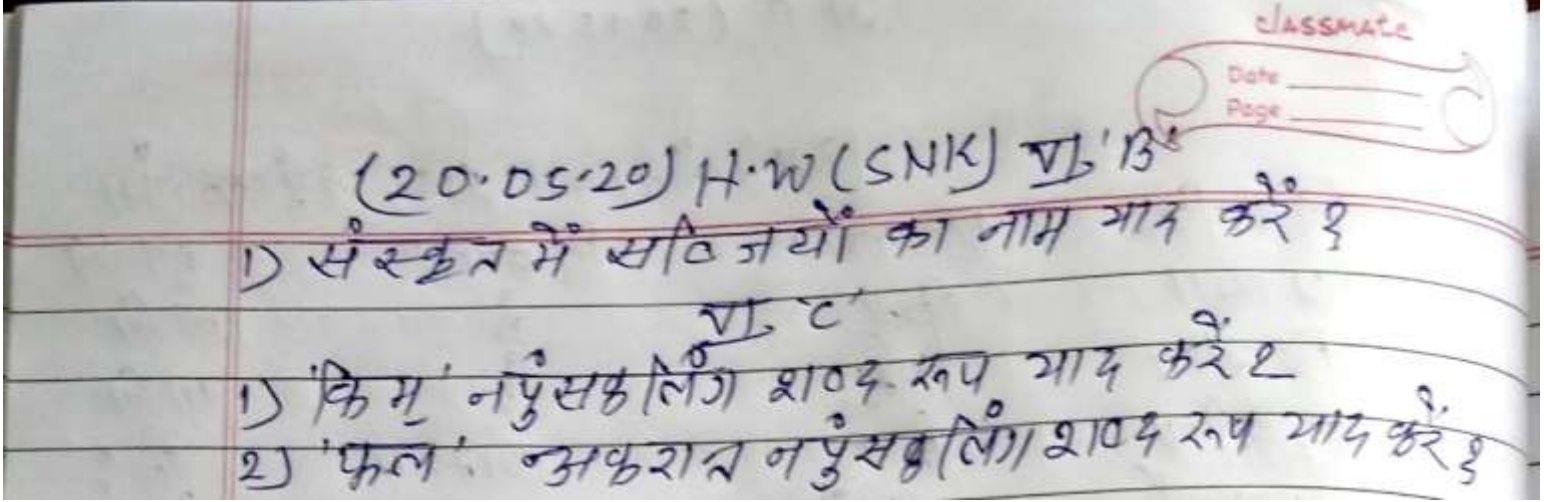 classmate
Date
Page
(20.05.20) H.W (SNK) VI 'B'
1) संस्कृत में सब्जियों का नाम याद करें ?
VI 'C'
1) 'किम्' नपुंसकलिंग शब्द रूप याद करें ?
2) 'फल' अकरान्त नपुंसकलिंग शब्द रूप याद करें ?